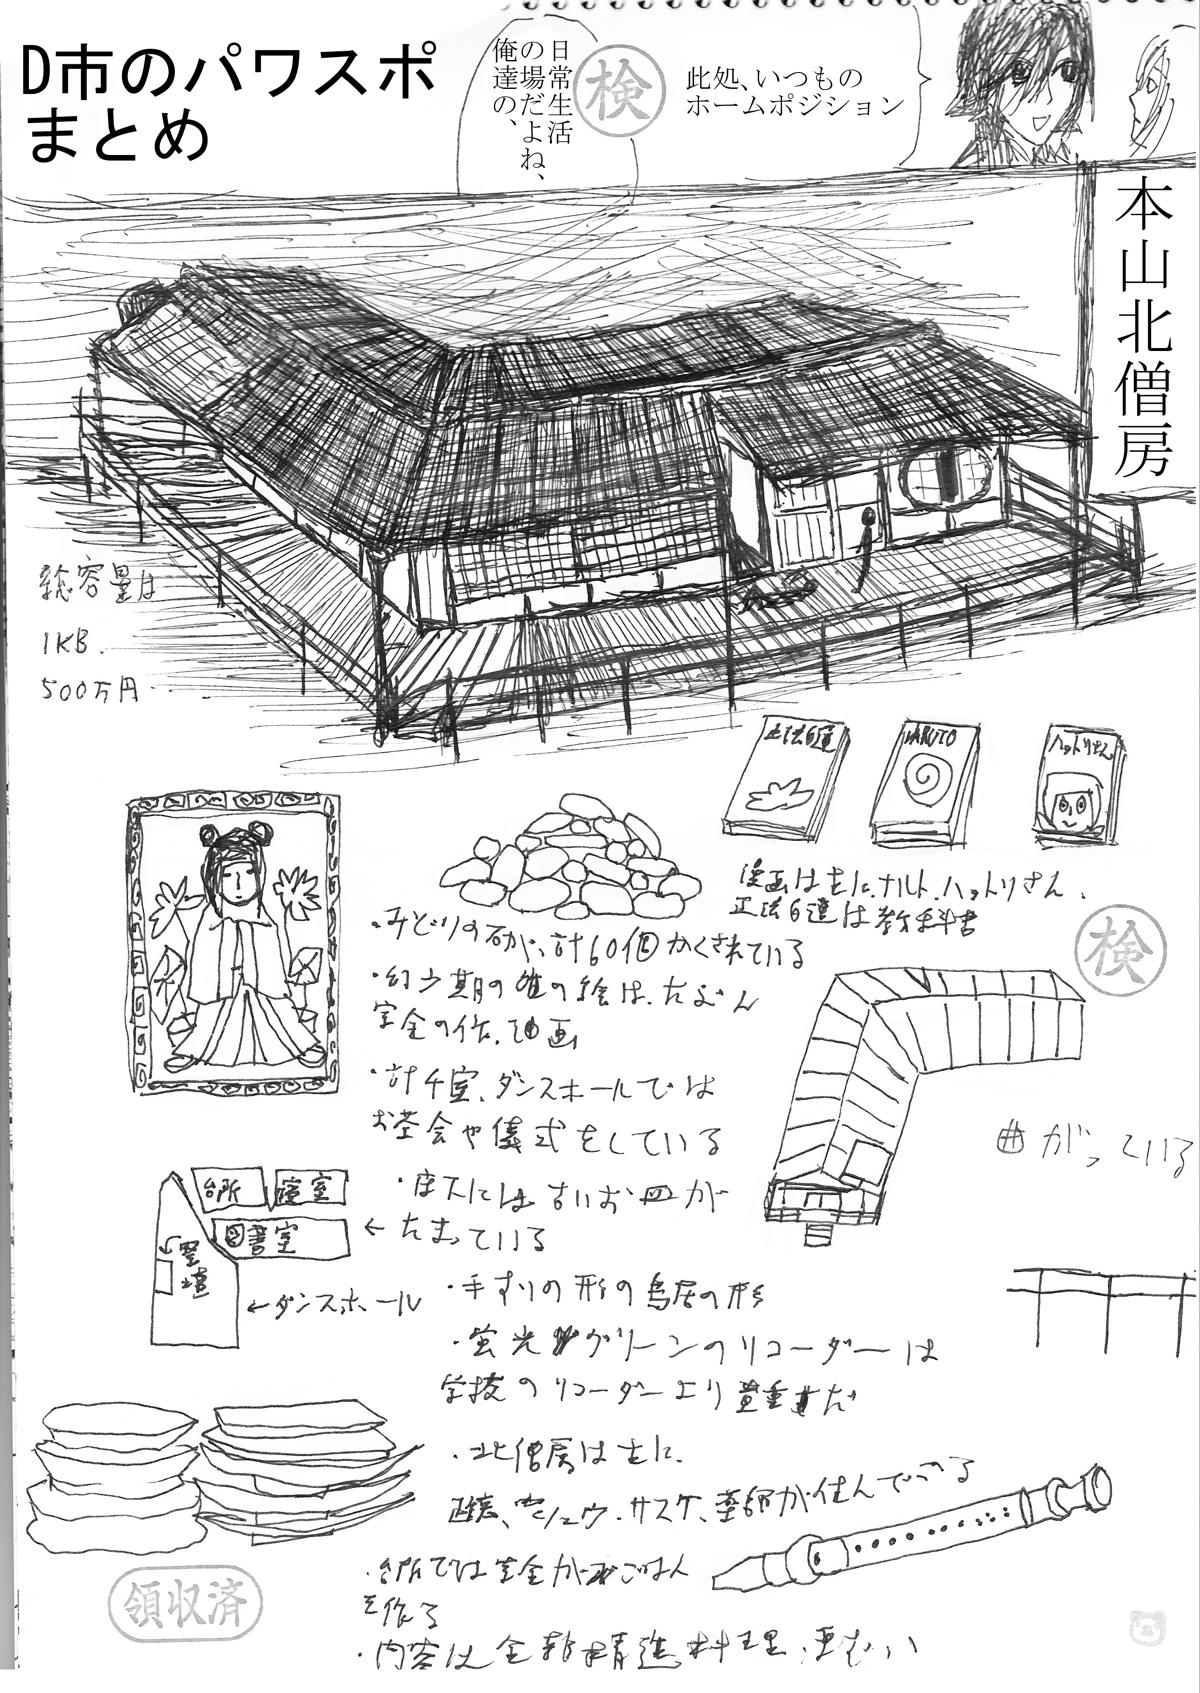 D市のパワスポ
まとめ
日常生活
の場だよね、
俺達の、
検
此処、いつもの
ホームポジション
本山北僧房
総容量は
1KB.
500万円
NARUTO
ハットリさん
漫画は主に、ナルト、ハットリさん、
正法白蓮は教科書
検
・みどりの石が、計60個かくされている
宝金の作、油画
・計千室、ダンスホールでは
お茶会や儀式をしている
曲がっている
台所
寝室
図書室
聖壇
←ダンスホール
・床下には古いお皿が
← たまっている
・手すりの形の鳥居の形
・蛍光グリーンのリコーダーは
学校のリコーダーより貴重だ
・北僧房は主に、
サスケ、薬師が住んでいる
・台所では宝金が
ごはん
を作る
・内容は全部精進料理
領収済